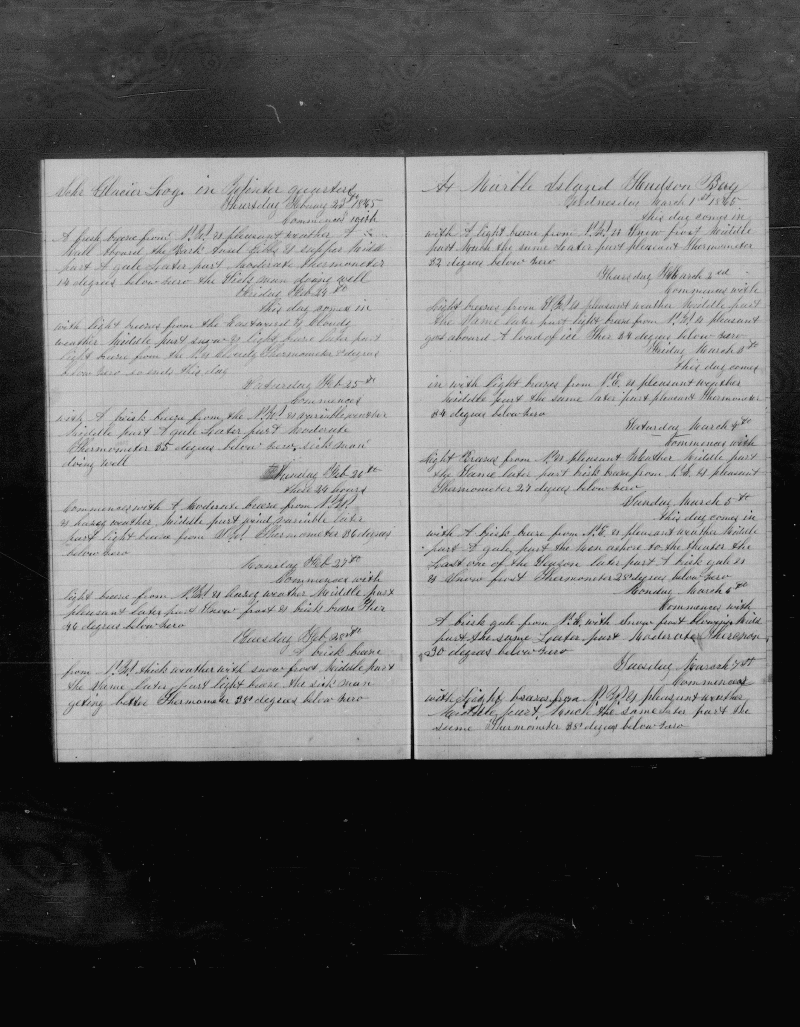 Schr Glacier Log in Winter quarters
Thursday February 23rd 1865
Commences with
A fresh breze from N.W. & pleasant weather A
Ball Aboard the Bark to supper Midd
part A gale Later part Moderate Thermometer
14 degrees below zero the Sick man doing well
Friday Feb 24th
this day comes in
with light brezes from the Eastward & Cloudy
weather Middle part snow & light breze later part
light breze from the Cloudy Thermometer degrees
below zero so ends this day
Saturday Feb 25th
Commences
with A brisk breze from the N.W. & variable weather
Middle part A gale Later part Moderate
Thermometer 35 degrees below zero sick man
doing well
Sunday Feb 26th
these 24 hours
Commences with A Moderate breze from N.W.
& hazey weather Middle part wind variable later
part light breze from N.W. Thermometer 36 degrees
below zero
Monday Feb 27th
Commences with
light breze from N.W. & hazey weather Middle part
pleasant later part Snow frost & brisk breze Ther
36 degrees below zero
Tuesday Feb 28th
A brisk breze
from N.W. thick weather with snow frost Middle part
the Same later part light breze the sick man
geting better Thermometer 38 degrees below zero
At Marble Island Hudson Bay
Wednesday March 1st 1865
this day comes in
with A light breze from N.W. & Snow frost Middle
part Much the same Later part pleasant Thermometer
32 degrees below zero
Thursday March 2nd
Commences with
light brezes from N.W. & pleasant weather Middle part
the Same later part light breze from N.W. & pleasant
got aboard A load of ice Ther 34 degrees below zero
Friday March 3th
this day comes
in with light brezes from N.E. & pleasant weather
Middle part the same later part pleasant Thermometer
34 degrees below zero
Saturday March 4th
Commences with
light Brezes from N. & pleasant Weather Middle part
the Same later part brisk breze from N.E. & pleasant
Thermometer 27 degrees below zero
Sunday March 5th
this day comes in
with A brisk breze from N.E. & pleasant weather Middle
part A gale, part the Men ashore to the theater the
Last one of the Season later part A brisk gale &
& Snow frost Thermometer 28 degrees below zero
Monday March 6th
Commences with
A brisk gale from N.E. with snow frost blowing Midd
part the same Later part Moderate Thermom
30 degrees below zero
Tuesday March 7th
Commences
with light brezes from N.W. & pleasant weather
Middle part Much the same later part the
same Thermometer 38 degrees below zero